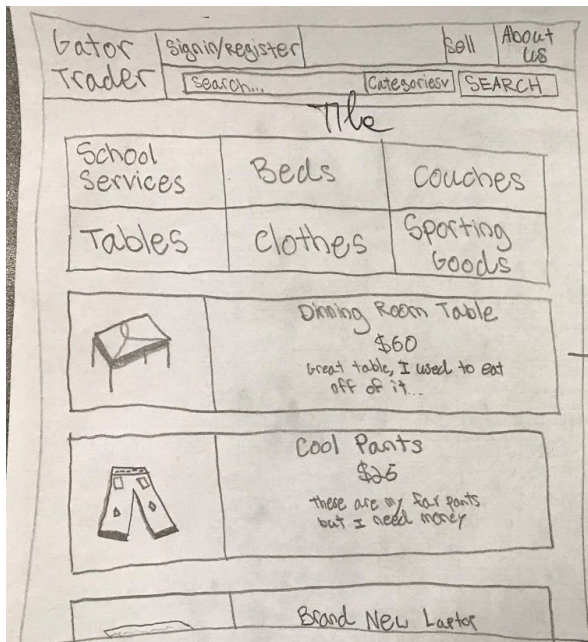 Gator Trader
Signin/Register
Sell
About us
Search...
Categories v
SEARCH
Title
School Services
Beds
Couches
Tables
Clothes
Sporting Goods
Dinning Room Table
$60
Great table, I used to eat
off of it...
Cool Pants
$25
these are my fav pants
but I need money
Brand New Laptop